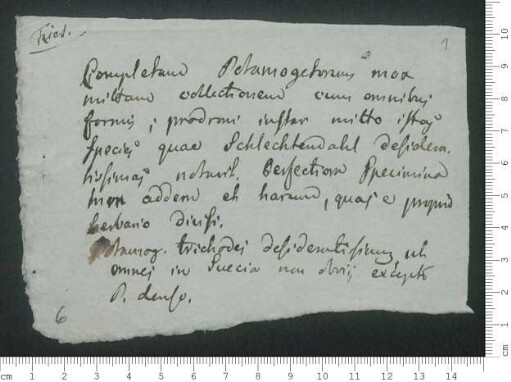 Fries.
1
Completam Potamogetorum mox
mittam collectionem cum omnibus
formis; prodromi instar mitto istas
species quae Schlechtendahl desideratissimas
notavit. Perfectiora specimina
mox addere et harum, quas e proprio
herbario divisi.
Potamog. trichodes desideratissimus, ut
omnes in Suecia non obvii excepto
P. denso.
6
cm 1 2 3 4 5 6 7 8 9 10 11 12 13 14
cm 1 2 3 4 5 6 7 8 9 10